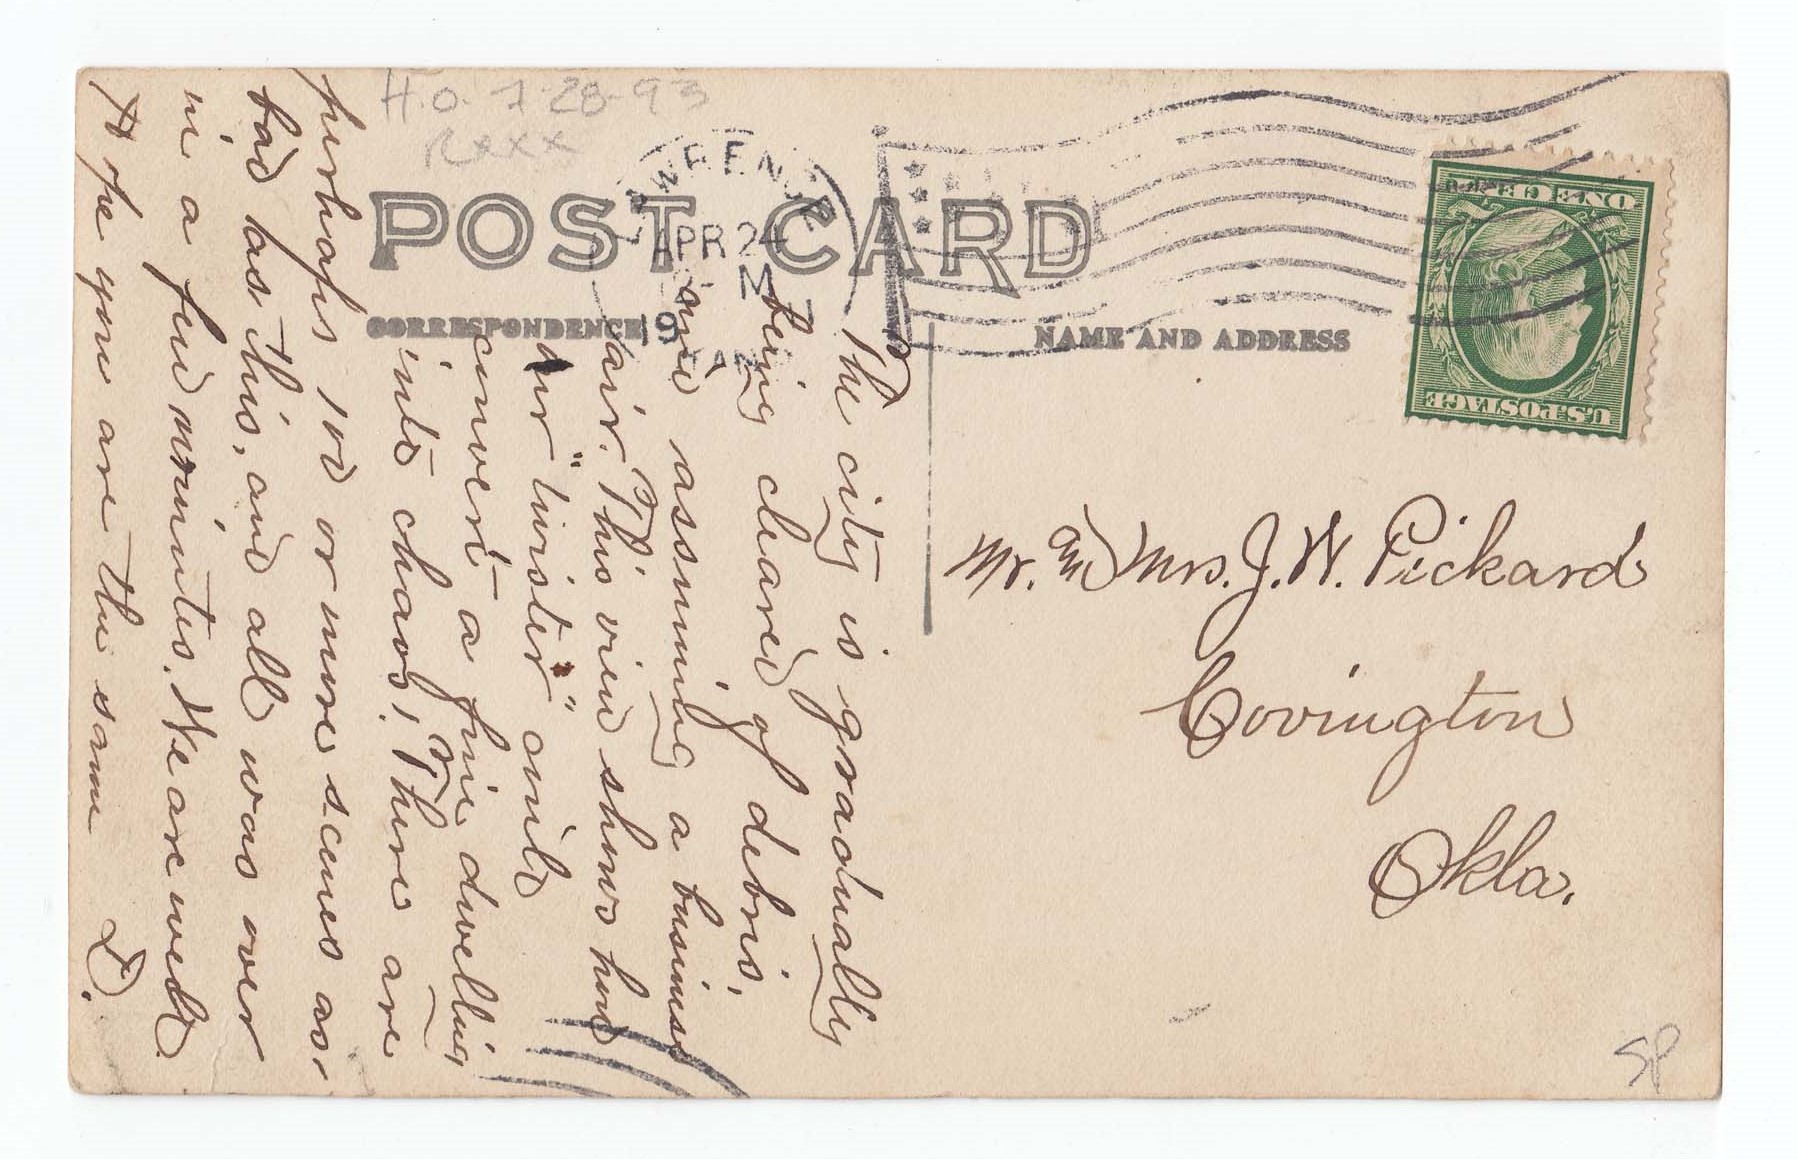 H.O. 7-28-93
Rxxx
POST CARD
LAWRENCE
APR 24
M
19
KANS
CORRESPONDENCE
NAME AND ADDRESS
ONE CENT
U.S. POSTAGE
The city is gradually
being cleared of debris,
and assuming a business
air. This view shows how
our "twister" could
convert a fine dwelling
into chaos; There are
perhaps 100 or more scenes as
bad as this, and all was over
in a few minutes. We are well.
Hope you are the same D.
Mr. and Mrs. J. W. Pickard
Covington
Okla.
SP